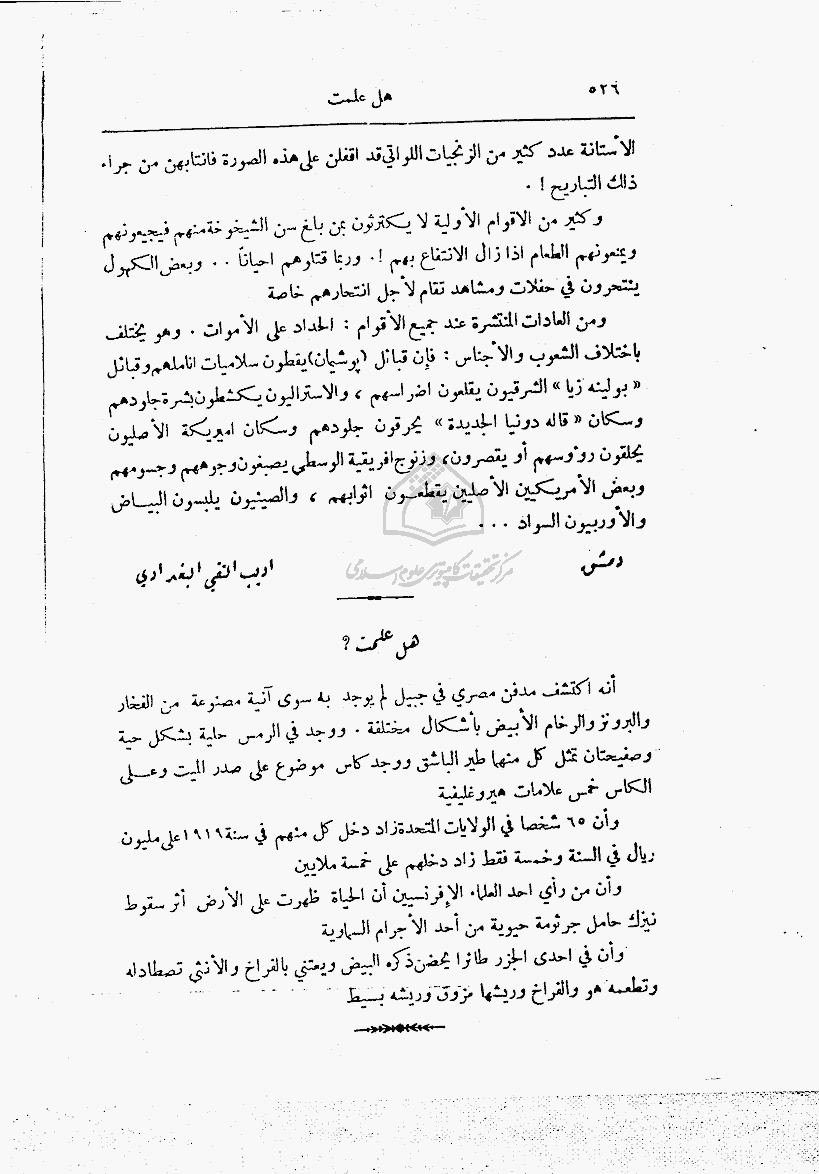 ٥٢٦
هل علمت
الأستانة عدد كثير من الزنجيات اللواتي قد اقفلن على هذه الصورة فانتابهن من جراء
ذلك التباريح ! .
وكثير من الاقوام الأولية لا يكترثون بمن بلغ سن الشيخوخة منهم فيجيعونهم
ويمنعونهم الطعام اذا زال الانتفاع بهم !. وربما قتلوهم احياناً .. وبعض الكهول
ينتحرون في حفلات ومشاهد تقام لأجل انتحارهم خاصة
ومن العادات المنتشرة عند جميع الأقوام : الحداد على الأموات . وهو يختلف
باختلاف الشعوب والأجناس : فإن قبائل (پرشيمان) يقطون سلاميات اناملهم وقبائل
« بولينه زيا » الشرقيون يقلعون اضراسهم ، والاستراليون يكشطون بشرة جلودهم
وسكان « قاله دونيا الجديدة » يحرقون جلودهم وسكان اميريكة الأصليون
يحلقون روٴوسهم أو يقصرون، وزنوج افريقية الوسطى يصبغون وجوههم وجسومهم
وبعض الأمريكيين الأصليين يقطعون اثوابهم ، والصينيون يلبسون البياض
والأوربيون السواد ...
دمشق
اديب التقي البغدادي
مركز تحقيقات كامپيوترى علوم اسلامى
هل علمت ؟
أنه اكتشف مدفن مصري في جبيل لم يوجد به سوى آنية مصنوعة من الفخار
والبرونز والرخام الأبيض بأشكال مختلفة . ووجد في الرمس حلية بشكل حية
وصفيحتان تمثل كل منها طير الباشق ووجد كاس موضوع على صدر الميت وعلى
الكاس خمس علامات هيروغليفية
وأن ٦٥ شخصا في الولايات المتحدة زاد دخل كل منهم في سنة ١٩١٩ على مليون
ريال في السنة وخمسة فقط زاد دخلهم على خمسة ملايين
وأن من رأي احد العلماء الإفرنسيين أن الحياة ظهرت على الأرض أثر سقوط
نيزك حامل جرثومة حيوية من أحد الأجرام السماوية
وأن في احدى الجزر طائرا يحضن ذكره البيض ويعتني بالفراخ والأنثى تصطاد له
وتطعمه هو والفراخ وريشها مزوق وريشه بسيط